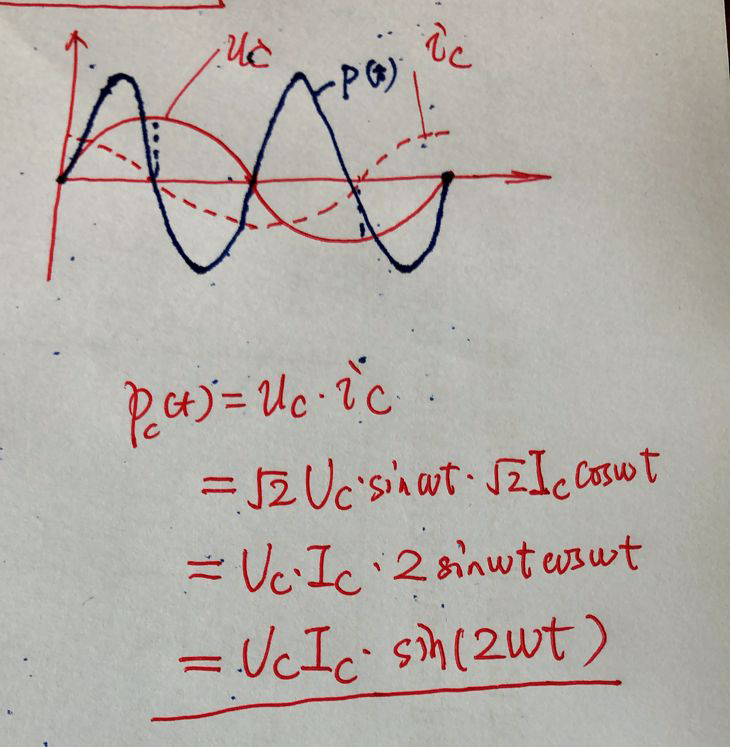 u_C p(t) i_C
p_C(t) = u_C · i_C
= √2 U_C · sin ωt · √2 I_C cos ωt
= U_C · I_C · 2 sin ωt cos ωt
= U_C I_C · sin(2ωt)